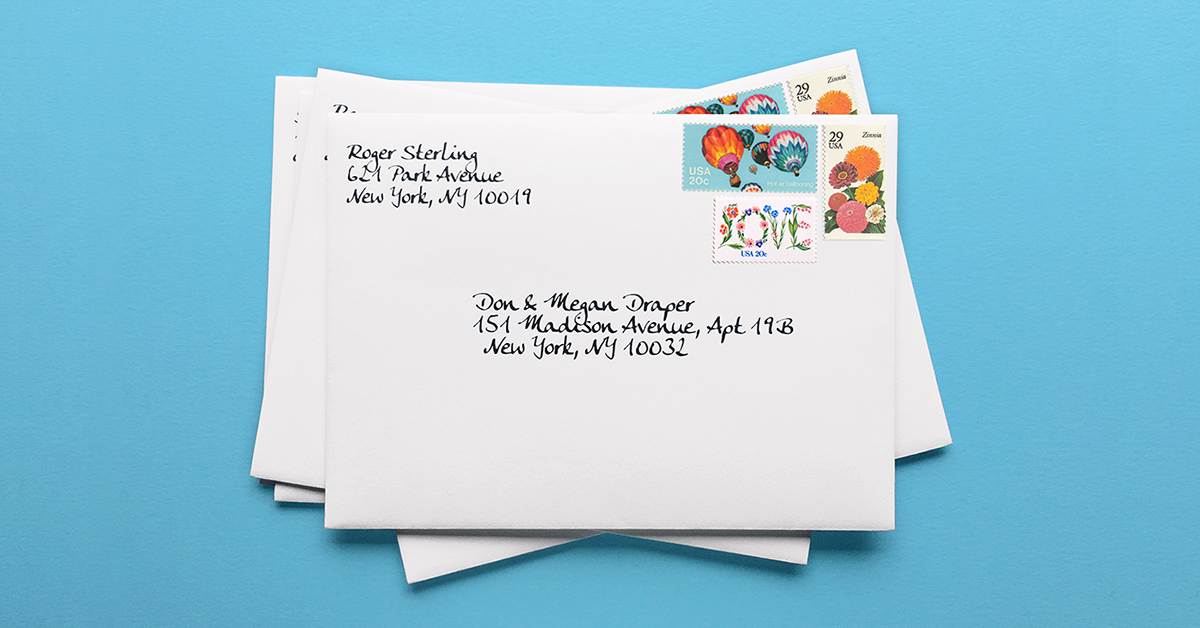 Roger Sterling
621 Park Avenue
New York, NY 10019
USA
20c
Hot air ballooning
29
USA
Zinnia
LOVE
USA 20c
29
USA
Zinnia
Don & Megan Draper
151 Madison Avenue, Apt 19B
New York, NY 10032